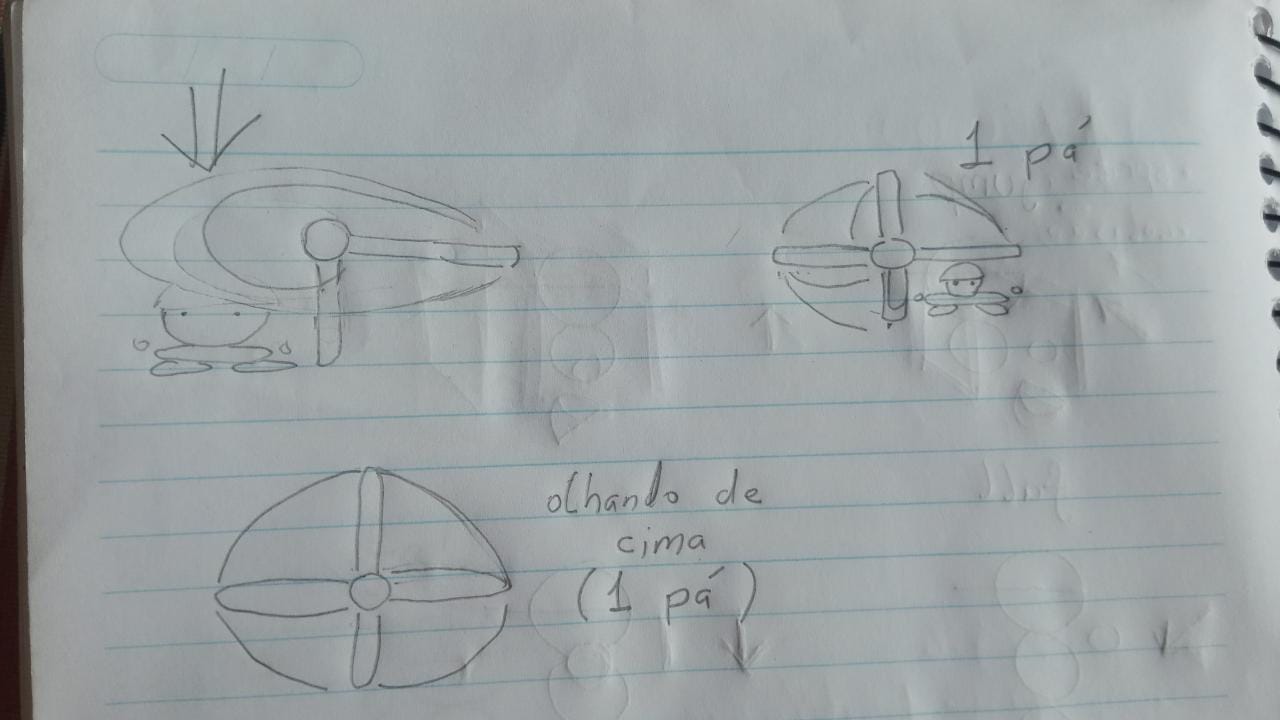 1 pá
olhando de
cima
(1 pá)